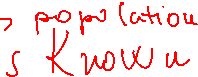 population
s Known